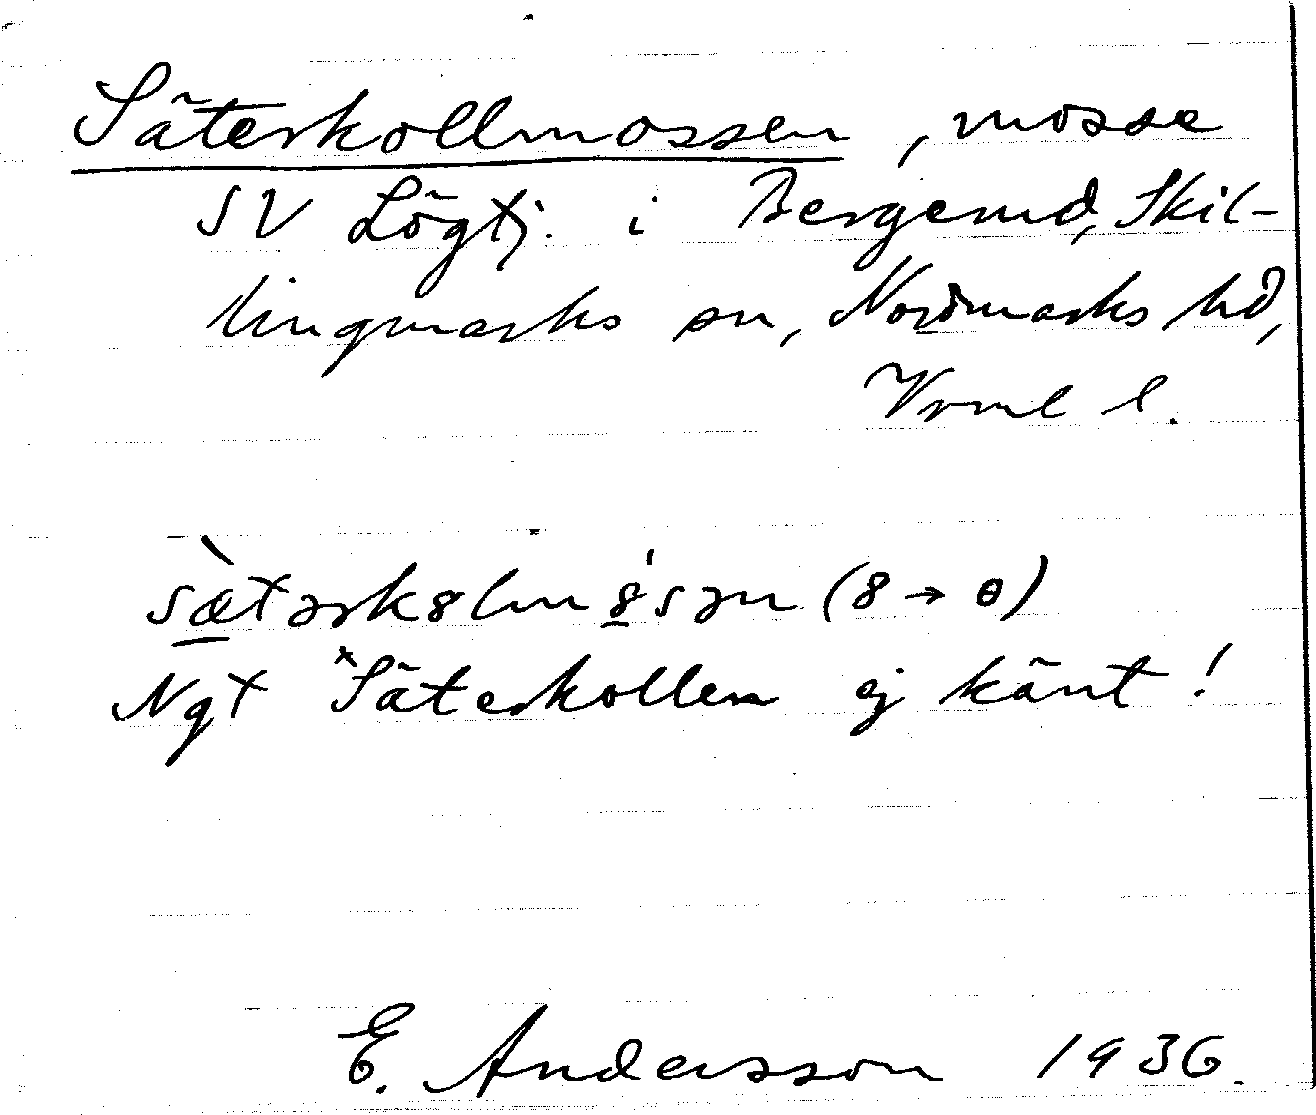 Säterkollmossen, mosse
SV Lögtj. i Bergerud, Skil-
lingmarks sn, Nordmarks hd,
Vrml l.
sæ̀tərk8lm8́sən (8 → ɵ)
Ngt *Säterkollen ej känt!
E. Andersson 1936.